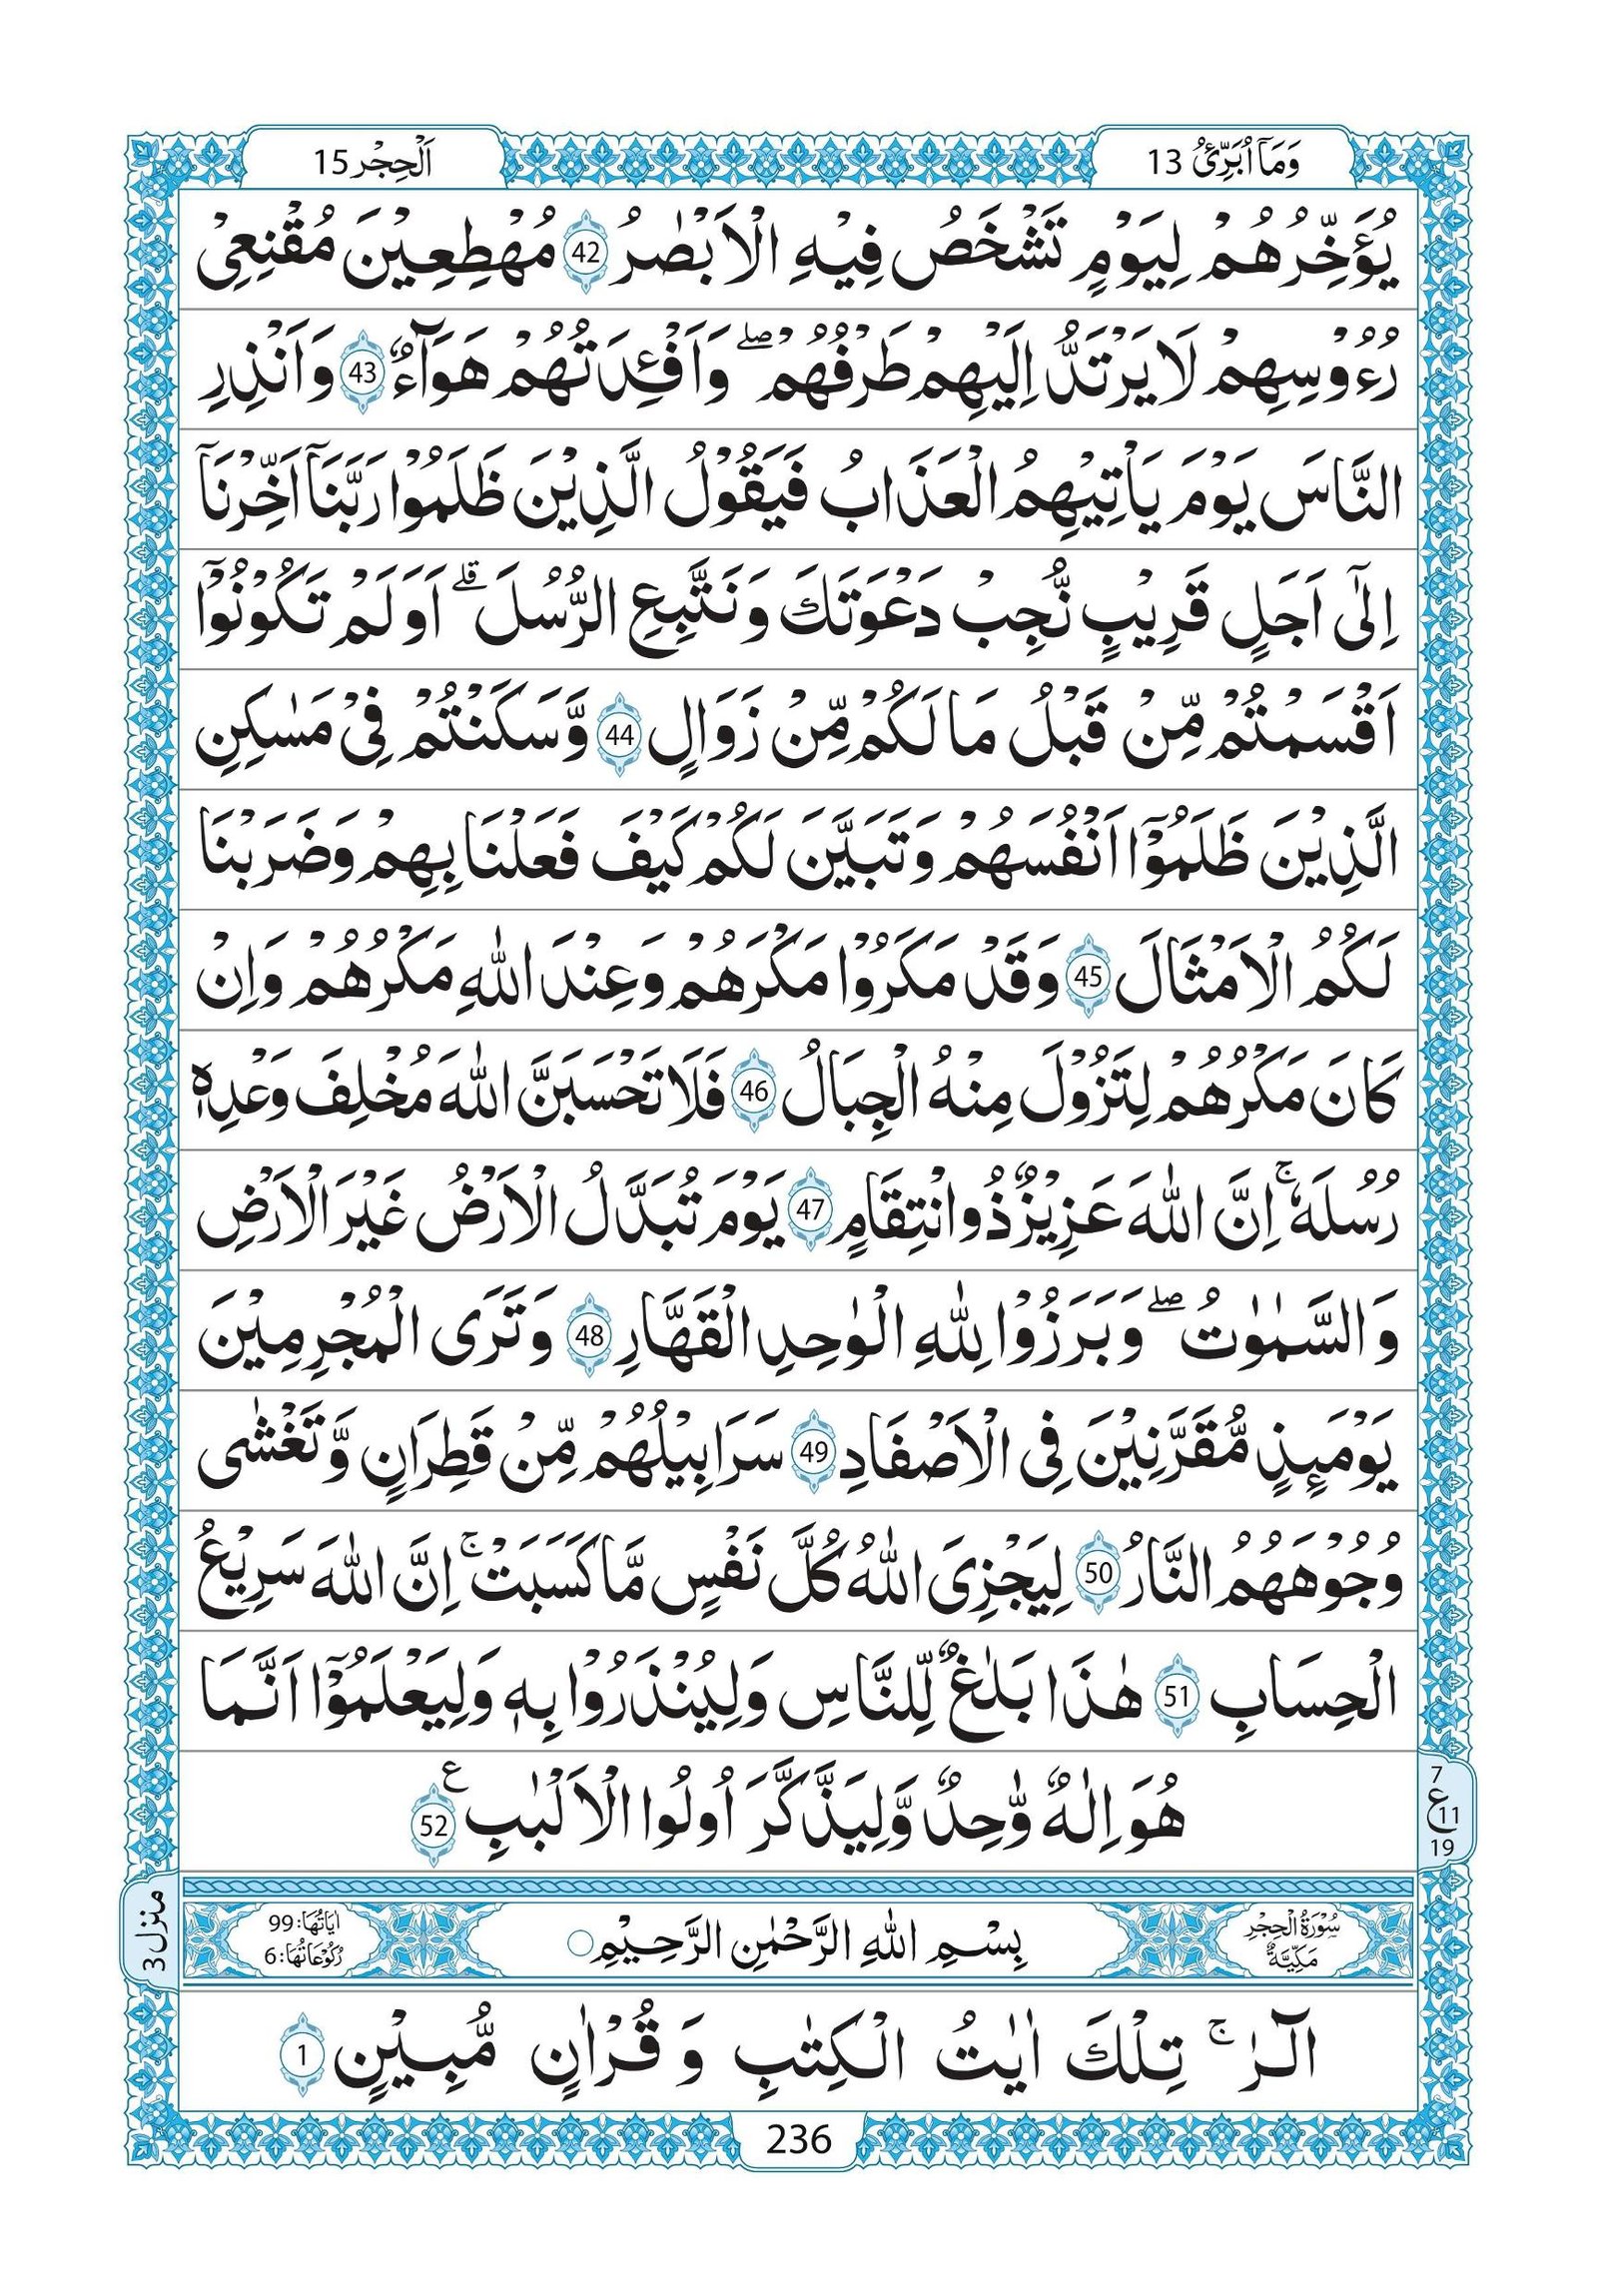 وَمَاۤ اُبَرِّئُ 13
اَلْحِجْر 15
يُؤَخِّرُهُمْ لِيَوْمٍ تَشْخَصُ فِيْهِ الْاَبْصٰرُ 42 مُهْطِعِيْنَ مُقْنِعِىْ
رُءُوْسِهِمْ لَا يَرْتَدُّ اِلَيْهِمْ طَرْفُهُمْ ۖ وَاَفْـِٕدَتُهُمْ هَوَآءٌ 43 وَاَنْذِرِ
النَّاسَ يَوْمَ يَاْتِيْهِمُ الْعَذَابُ فَيَقُوْلُ الَّذِيْنَ ظَلَمُوْا رَبَّنَاۤ اَخِّرْنَاۤ
اِلٰٓى اَجَلٍ قَرِيْبٍ نُّجِبْ دَعْوَتَكَ وَنَتَّبِعِ الرُّسُلَ ۗ اَوَلَمْ تَكُوْنُوْۤا
اَقْسَمْتُمْ مِّنْ قَبْلُ مَا لَكُمْ مِّنْ زَوَالٍ 44 وَّسَكَنْتُمْ فِىْ مَسٰكِنِ
الَّذِيْنَ ظَلَمُوْۤا اَنْفُسَهُمْ وَتَبَيَّنَ لَكُمْ كَيْفَ فَعَلْنَا بِهِمْ وَضَرَبْنَا
لَكُمُ الْاَمْثَالَ 45 وَقَدْ مَكَرُوْا مَكْرَهُمْ وَعِنْدَ اللّٰهِ مَكْرُهُمْ وَاِنْ
كَانَ مَكْرُهُمْ لِتَزُوْلَ مِنْهُ الْجِبَالُ 46 فَلَا تَحْسَبَنَّ اللّٰهَ مُخْلِفَ وَعْدِهٖ
رُسُلَهٗ ۚ اِنَّ اللّٰهَ عَزِيْزٌ ذُو انْتِقَامٍ 47 يَوْمَ تُبَدَّلُ الْاَرْضُ غَيْرَ الْاَرْضِ
وَالسَّمٰوٰتُ ۖ وَبَرَزُوْا لِلّٰهِ الْوٰحِدِ الْقَهَّارِ 48 وَتَرَى الْمُجْرِمِيْنَ
يَوْمَئِذٍ مُّقَرَّنِيْنَ فِى الْاَصْفَادِ 49 سَرَابِيْلُهُمْ مِّنْ قَطِرَانٍ وَّتَغْشٰى
وُجُوْهَهُمُ النَّارُ 50 لِيَجْزِىَ اللّٰهُ كُلَّ نَفْسٍ مَّا كَسَبَتْ ۚ اِنَّ اللّٰهَ سَرِيْعُ
الْحِسَابِ 51 هٰذَا بَلٰغٌ لِّلنَّاسِ وَلِيُنْذَرُوْا بِهٖ وَلِيَعْلَمُوْۤا اَنَّمَا
هُوَ اِلٰهٌ وّٰحِدٌ وَّلِيَذَّكَّرَ اُولُوا الْاَلْبٰبِ ع 52
7
ع 11
19
منزل 3
سُوْرَةُ الْحِجْرِ
مَكِّيَّةٌ
بِسْمِ اللّٰهِ الرَّحْمٰنِ الرَّحِيْمِ
اٰيَاتُهَا: 99
رُكُوْعَاتُهَا: 6
الٓرٰ ۚ تِلْكَ اٰيٰتُ الْكِتٰبِ وَ قُرْاٰنٍ مُّبِيْنٍ 1
236